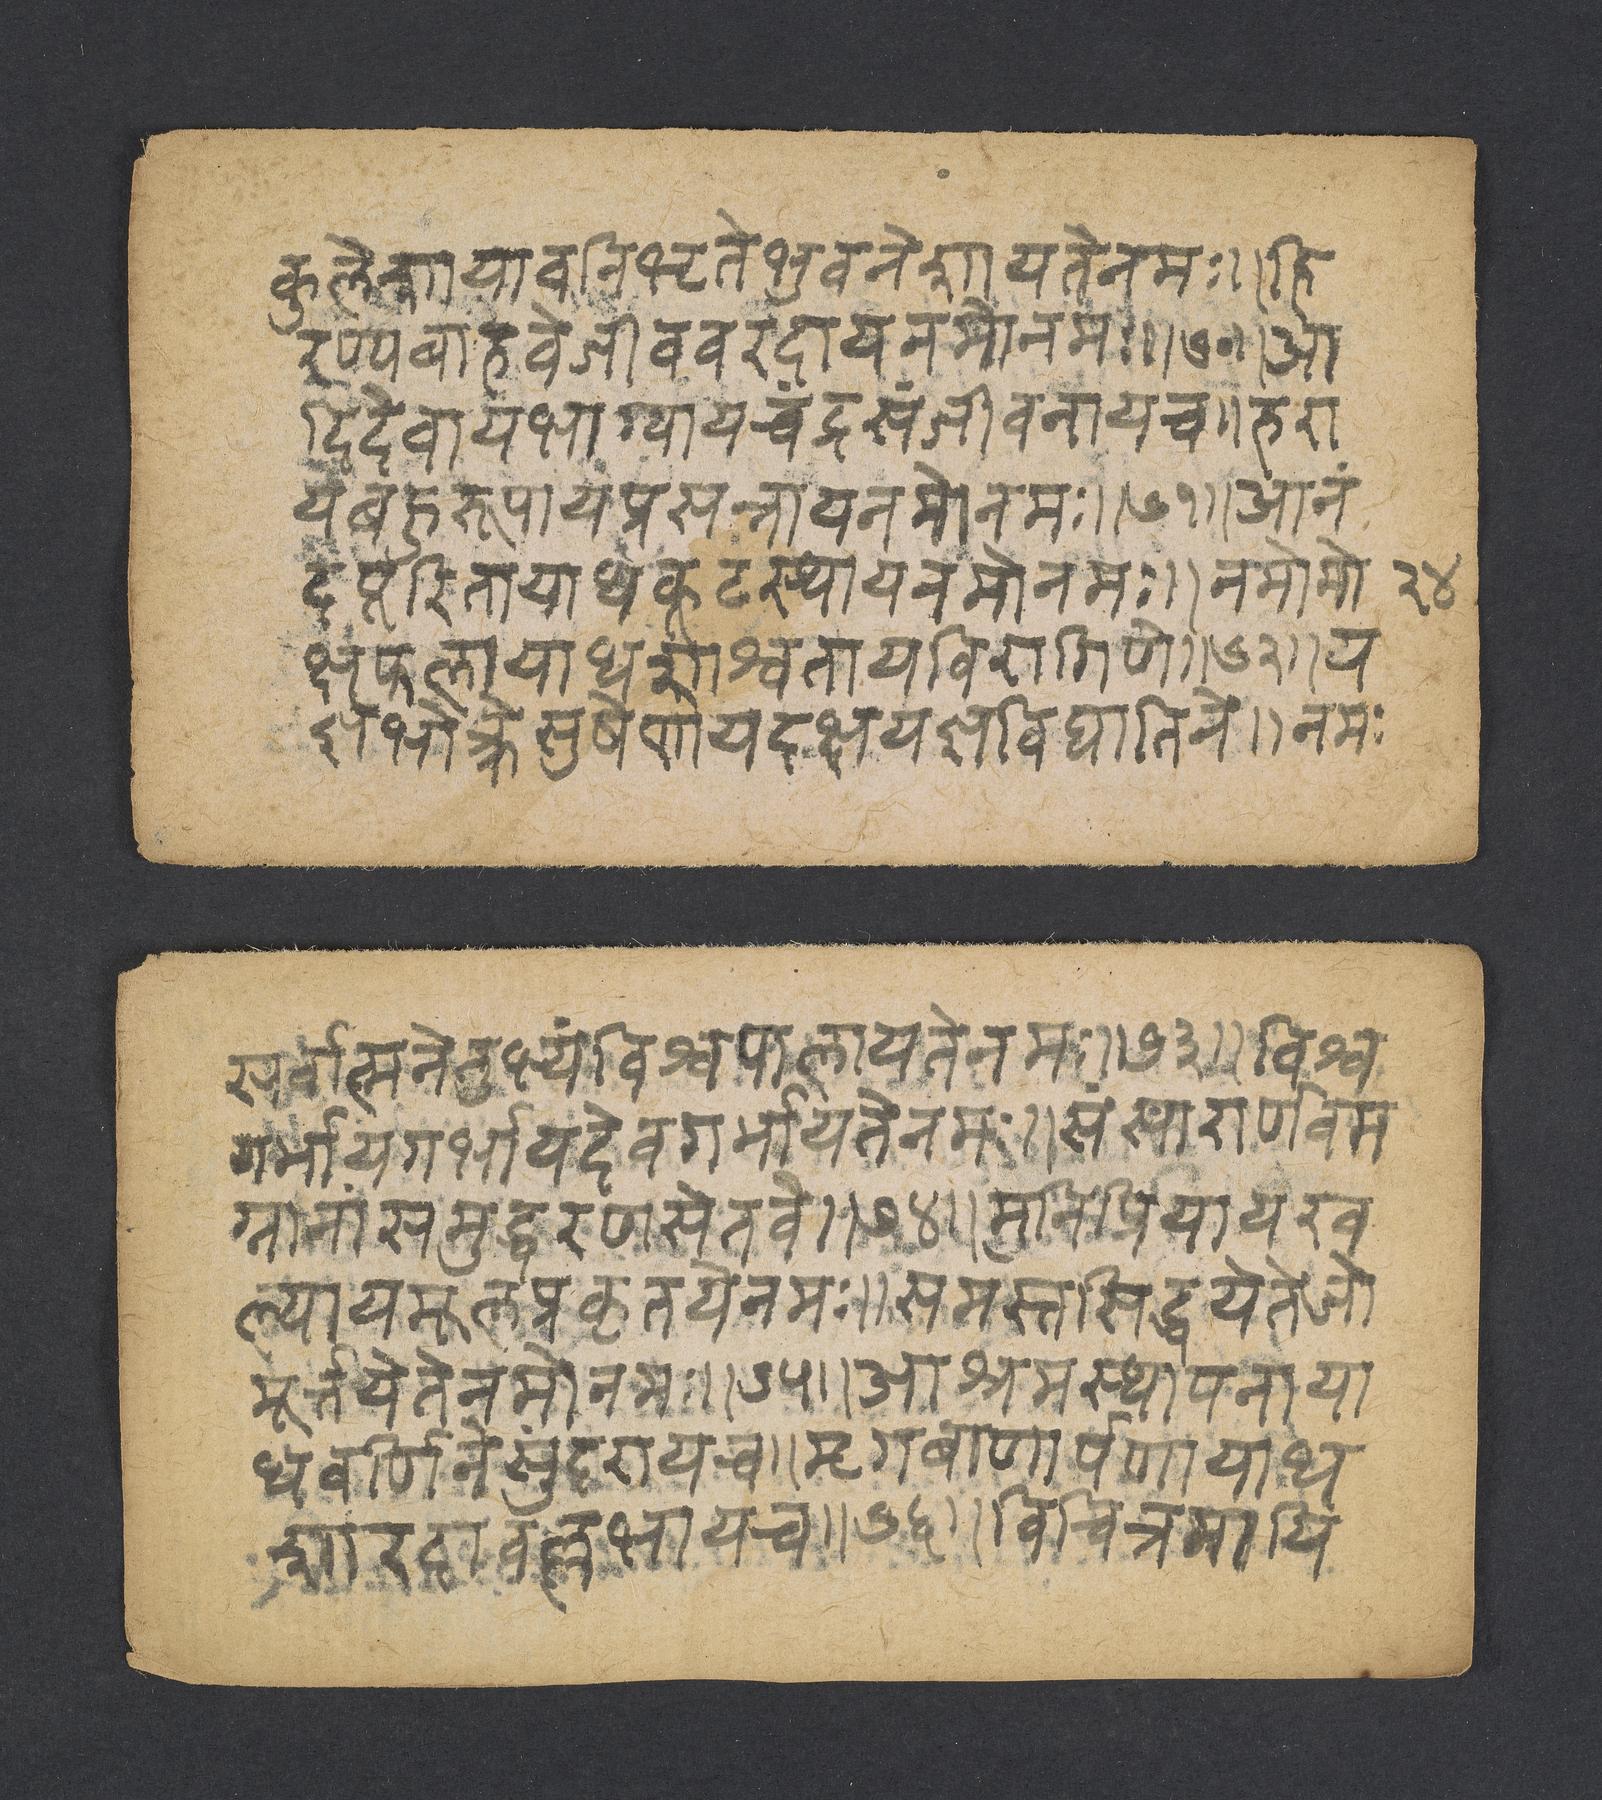 कुलेशायावनिभृतेभुवनेशायतेनमः॥हि
रण्यबाहवेजीववरदायनमोनमः॥७०॥आ
दिदेवायभाग्यायचंद्रसंजीवनायच॥हरा
यबहुरूपायप्रसन्नायनमोनमः॥७१॥आनं
दपूरितायाथकूटस्थायनमोनमः॥नमोमो
२४
क्षफलायाथशाश्वतायविरागिणे॥७२॥य
ज्ञभोक्त्रेसुषेणायदक्षयज्ञविघातिने॥नमः
सर्वात्मनेतुभ्यंविश्वपालायतेनमः॥७३॥विश्व
गर्भायगर्भायदेवगर्भायतेनमः॥संसारार्णवम
ग्नानांसमुद्धरणसेतवे॥७४॥मुनिप्रियायखव
ल्यायमूलप्रकृतयेनमः॥समस्तसिद्धयेतेजो
मूर्त्तयेतेनमोनमः॥७५॥आश्रमस्थापनाया
थवर्णिनेसुंदरायच॥मृगबाणार्पणायाथ
शारदावल्लभायच॥७६॥विचित्रमायि